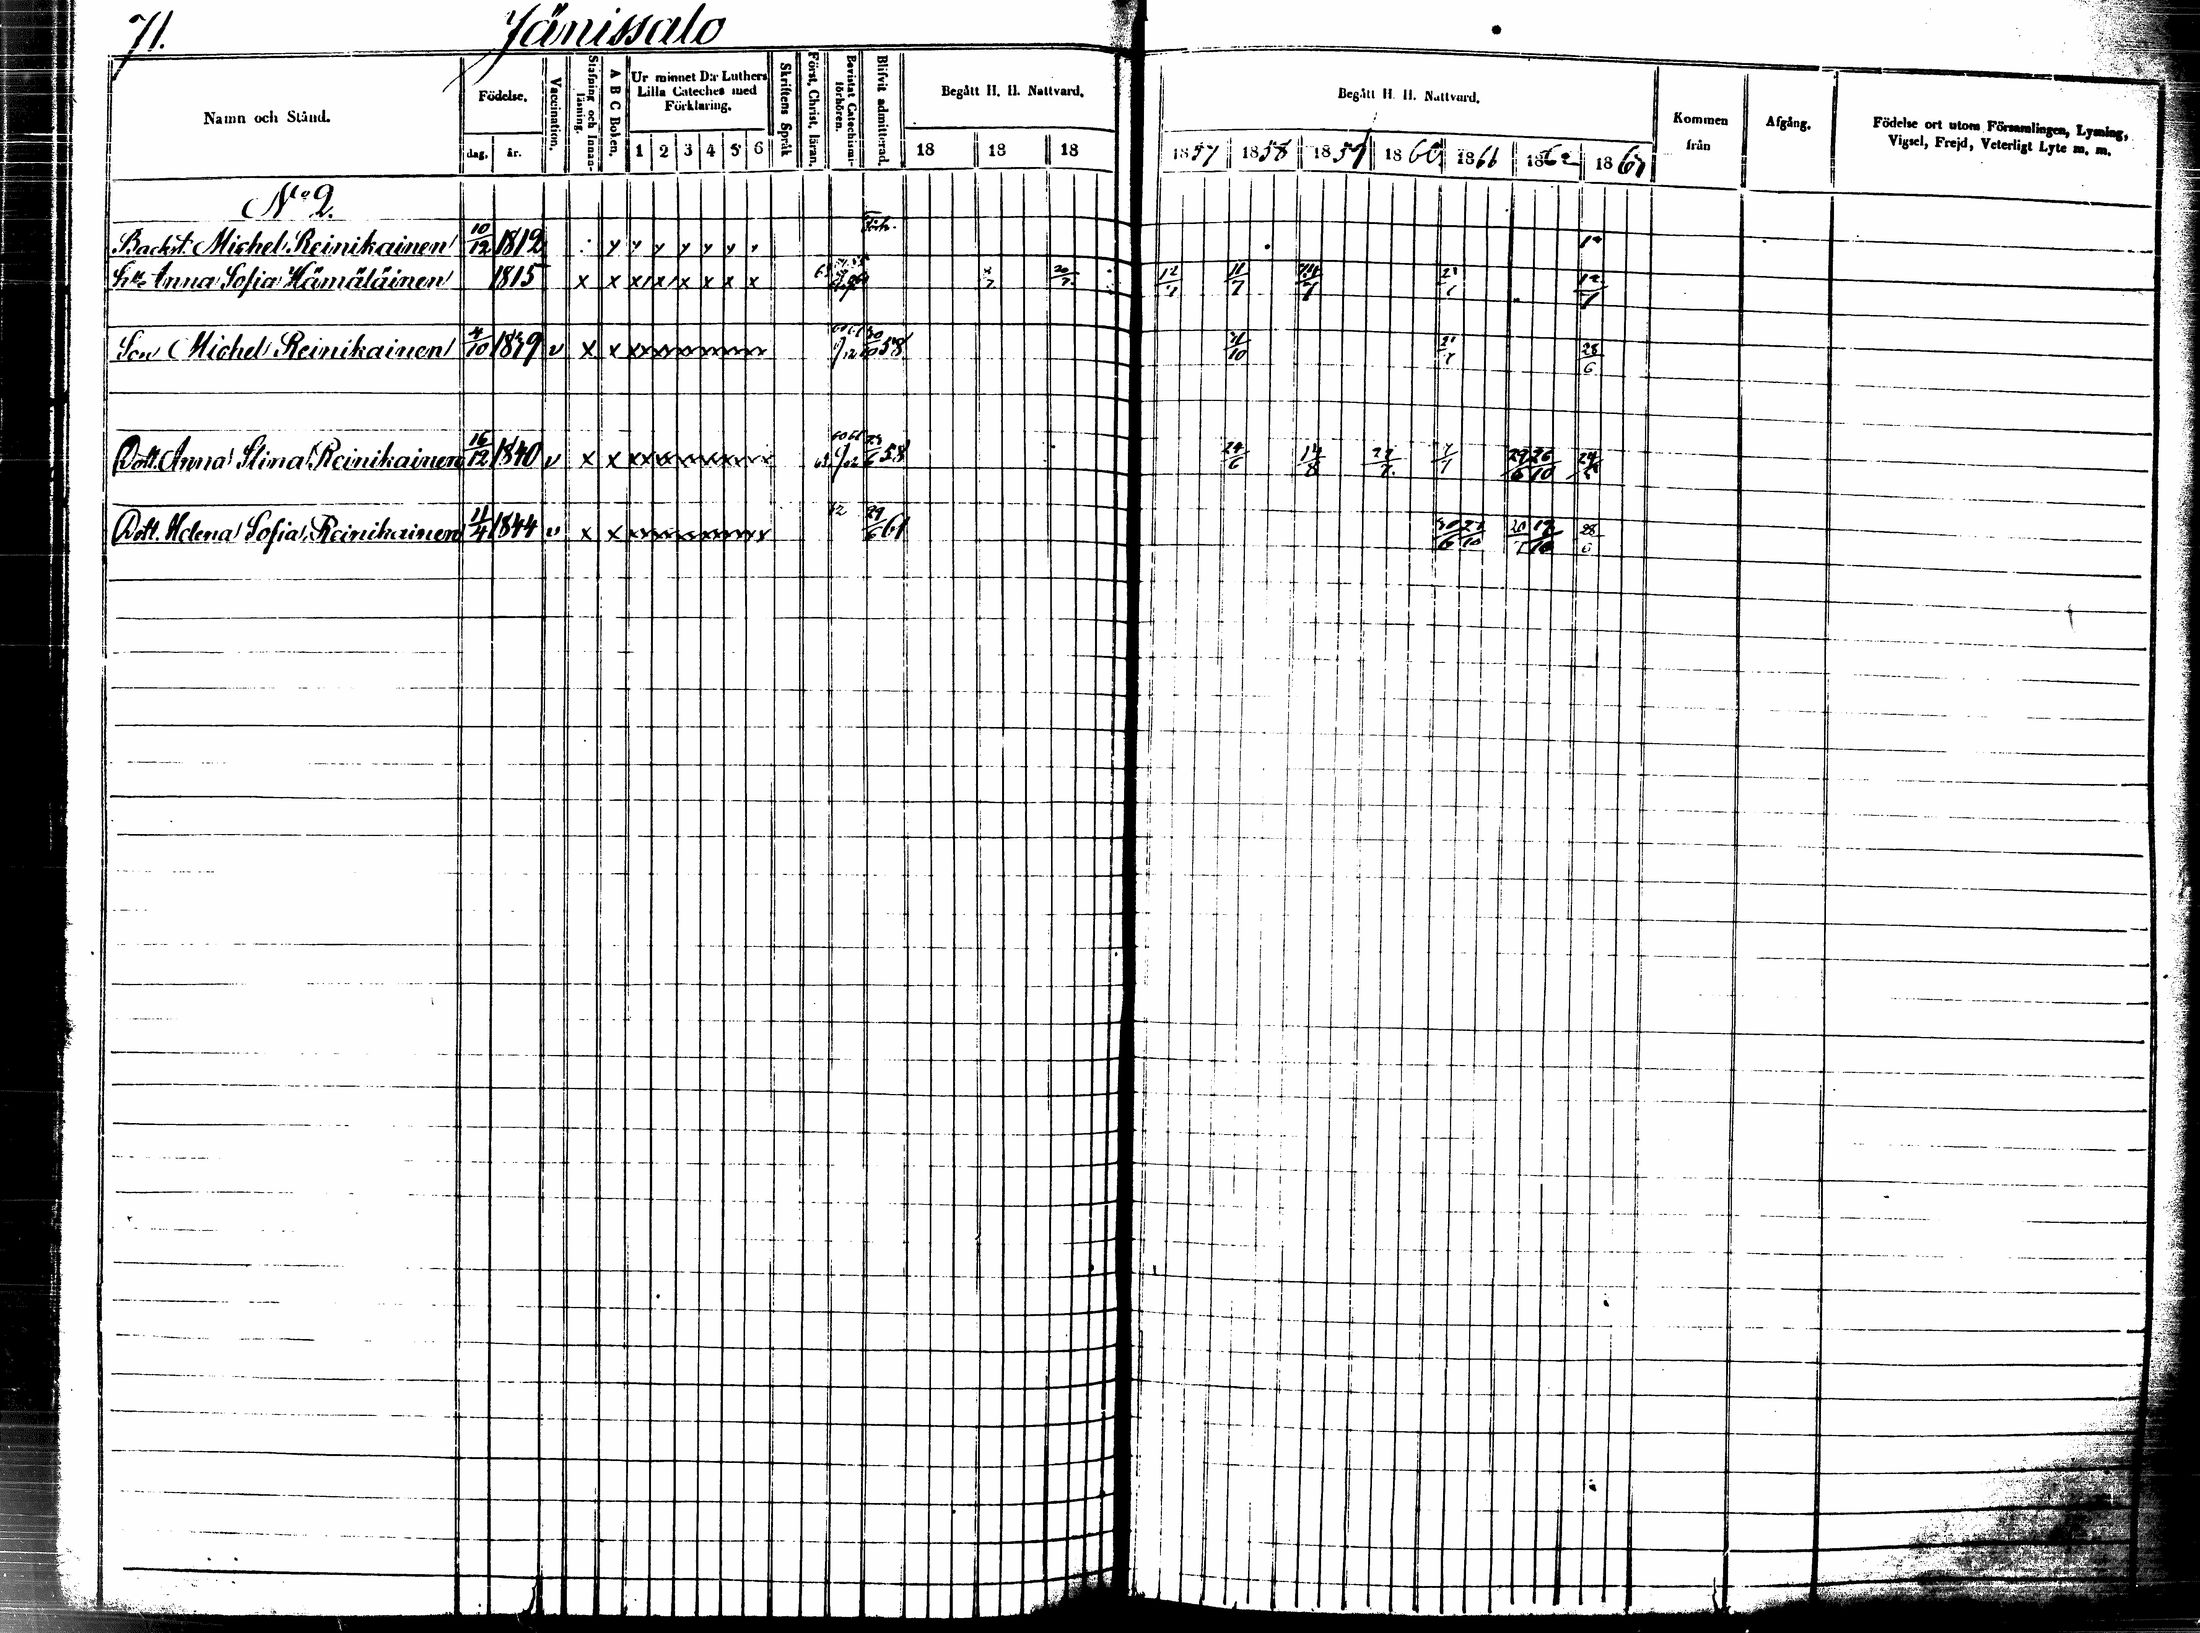 71. Jänissalo
Namn och Stånd. Födelse. dag. år. Vaccination. Stafning och Innanläsning. A B C Boken. Ur minnet D:r Luthers Lilla Cateches med Förklaring. 1 2 3 4 5 6 Skriftens Språk Först. Christ. läran. Bevistat Catechismi-förhören. Blifvit admitterad. Begått H. H. Nattvard. 18 18 18
Begått H. H. Nattvard. 1857 1858 1859 1860 1861 1862 1863 Kommen från Afgång. Födelse ort utom Församlingen, Lysning, Vigsel, Frejd, Veterligt Lyte m. m.
No 2.
Backst. Michel Reinikainen 10/12 1812
Anna Sofia Hämäläinen 1815 x x x x x x x x 20/7 12/7 11/7
Son Michel Reinikainen 4/10 1839 v x x 60 61 58 31/10 28/6
Dott. Anna Stina Reinikainen 16/12 1840 v x x 60 61 58 24/6 14/8 29/6 26/10
Dott. Helena Sofia Reinikainen 11/4 1844 v x x 62 29/6 61 30/6 19/10 28/6